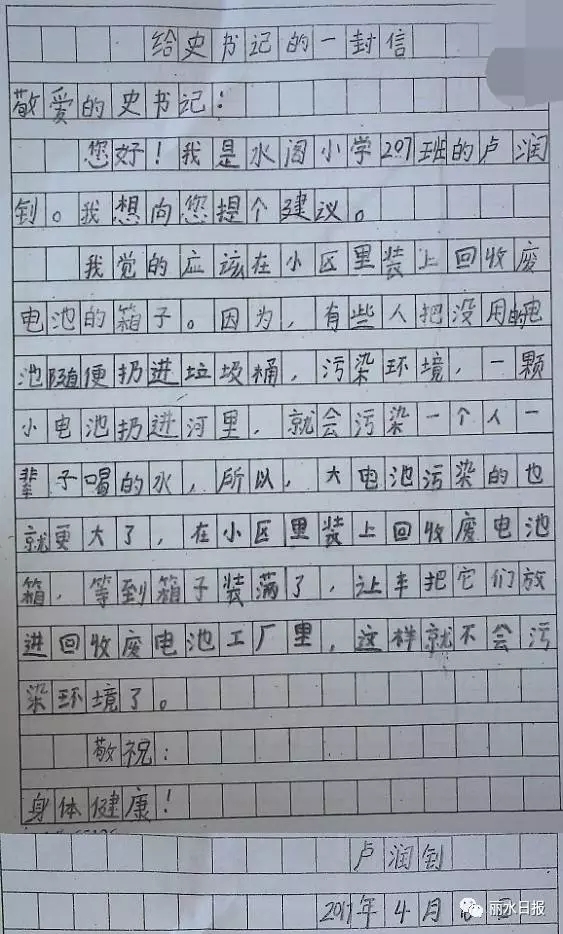 给史书记的一封信
敬爱的史书记：
您好！我是水阁小学207班的卢润
钊。我想向您提个建议。
我觉的应该在小区里装上回收废
电池的箱子。因为，有些人把没用的电
池随便扔进垃圾桶，污染环境，一颗
小电池扔进河里，就会污染一个人一
辈子喝的水，所以，大电池污染的也
就更大了，在小区里装上回收废电池
箱，等到箱子装满了，让车把它们放
进回收废电池工厂里，这样就不会污
染环境了。
敬祝：
身体健康！
卢润钊
2017年4月
丽水日报